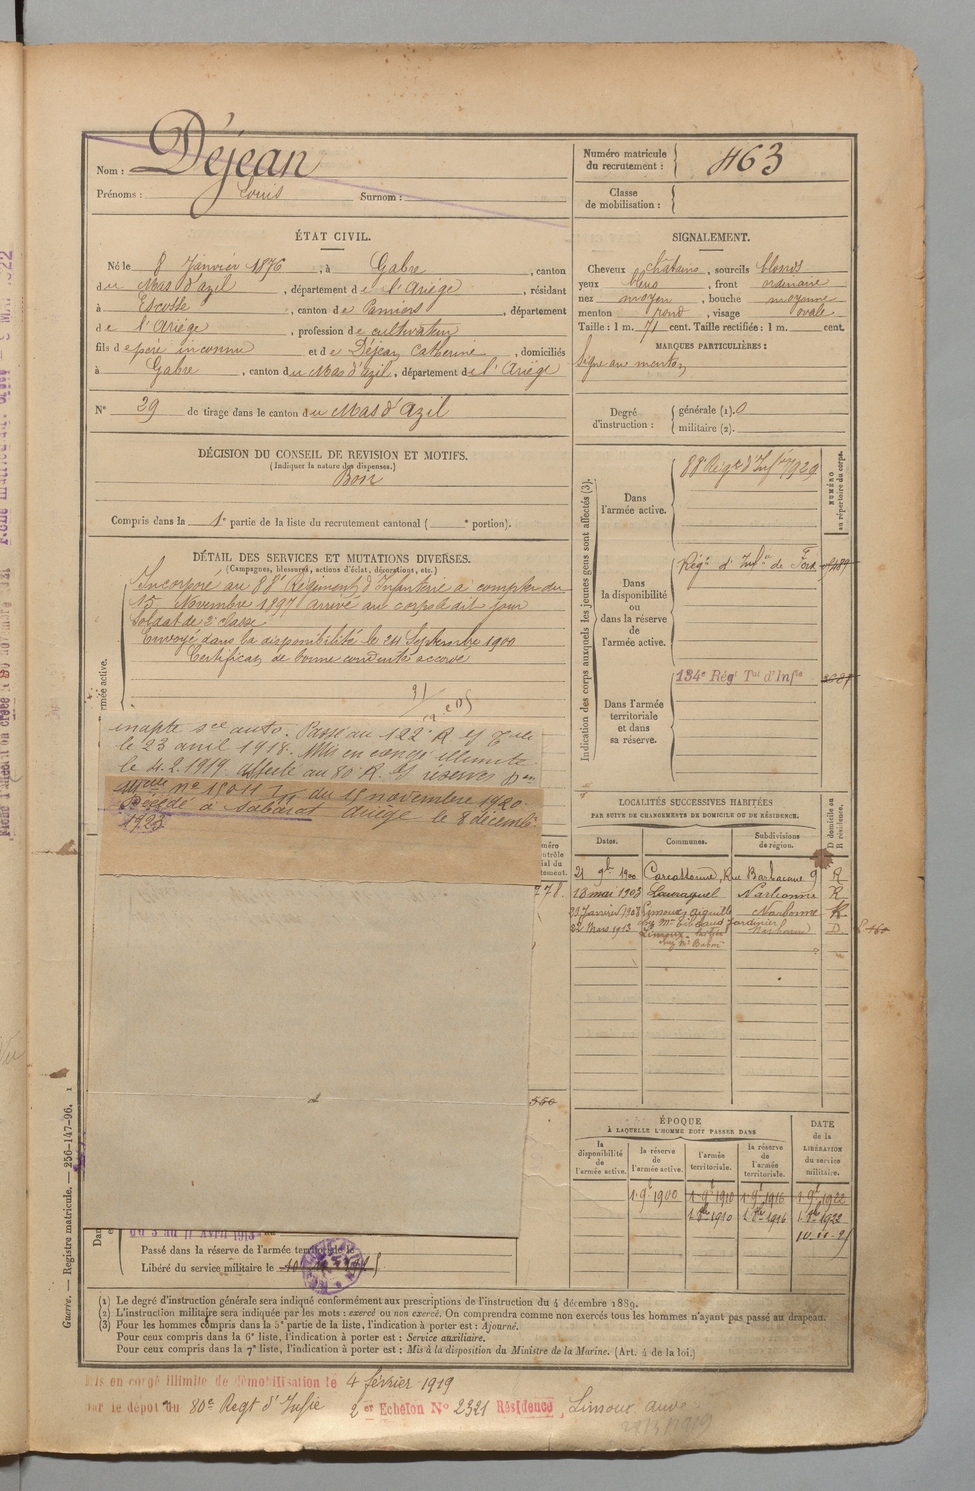 Nom : Déjean
Prénoms : Louis Surnom :
Numéro matricule du recrutement : 463
Classe de mobilisation :
ÉTAT CIVIL.
Né le 8 Janvier 1876, à Gabre, canton
du Mas d'azil, département de l'Ariège, résidant
à Escosse, canton de Pamiers, département
de l'Ariège, profession de cultivateur
fils de père inconnu et de Déjean Catherine, domiciliés
à Gabre, canton du Mas d'azil, département de l'Ariège
N° 29 de tirage dans le canton du Mas d'Azil
SIGNALEMENT.
Cheveux chatains, sourcils blonds
yeux bleus, front ordinaire
nez moyen, bouche moyenne
menton rond, visage ovale
Taille : 1 m. 71 cent. Taille rectifiée : 1 m. cent.
MARQUES PARTICULIÈRES :
Signe au menton
Degré d'instruction : générale (1). 0
militaire (2).
DÉCISION DU CONSEIL DE REVISION ET MOTIFS.
(Indiquer la nature des dispenses.)
Bon
Compris dans la 1e partie de la liste du recrutement cantonal ( e portion).
DÉTAIL DES SERVICES ET MUTATIONS DIVERSES.
(Campagnes, blessures, actions d'éclat, décorations, etc.)
Incorporé au 88e Régiment d'Infanterie à compter du
15 Novembre 1897 arrivé au corps le dit jour
Soldat de 2e classe
Envoyé dans la disponibilité le 24 Septembre 1900
Certificat de bonne conduite accordé
inapte sce auto. Passé au 122e R
le 23 avril 1918. Mis en congé illimité
le 4.2.1919. Affecté au 80e R. réserves
du 15 novembre 1920.
Décédé à Sabarat Ariège le 8 décembre
1923
Indication des corps auxquels les jeunes gens sont affectés (3).
NUMÉRO au répertoire du corps.
Dans l'armée active.
88e Régt d'Infie
Dans la disponibilité ou dans la réserve de l'armée active.
Régt d'Infie de Foix
Dans l'armée territoriale et dans sa réserve.
134e Régt Tal d'Infie
LOCALITÉS SUCCESSIVES HABITÉES
PAR SUITE DE CHANGEMENTS DE DOMICILE OU DE RÉSIDENCE.
Dates. Communes. Subdivisions de région. D domicile ou R résidence.
21 9bre 1900 Carcassonne, Rue Barbacane 9 R
18 mai 1903 Lauraguel Narbonne R
20 Janvier 1908 Limoux Narbonne R
22 Mars 1913 Limoux Narbonne D
ÉPOQUE
À LAQUELLE L'HOMME DOIT PASSER DANS
la disponibilité de l'armée active.
la réserve de l'armée active.
l'armée territoriale.
la réserve de l'armée territoriale.
DATE de la LIBÉRATION du service militaire.
1 9bre 1900 1 9bre 1910 1 9bre 1916 1 9bre 1922
Passé dans la réserve de l'armée territoriale le
Libéré du service militaire le
(1) Le degré d'instruction générale sera indiqué conformément aux prescriptions de l'instruction du 4 décembre 1889.
(2) L'instruction militaire sera indiquée par les mots : exercé ou non exercé. On comprendra comme non exercés tous les hommes n'ayant pas passé au drapeau.
(3) Pour les hommes compris dans la 5e partie de la liste, l'indication à porter est : Ajourné.
Pour ceux compris dans la 6e liste, l'indication à porter est : Service auxiliaire.
Pour ceux compris dans la 7e liste, l'indication à porter est : Mis à la disposition du Ministre de la Marine. (Art. 4 de la loi.)
Guerre. — Registre matricule. — 256-147-96.
Mis en congé illimité de démobilisation le 4 février 1919
par le dépôt du 80e Regt d'Infie 2e Echelon N° 2321 Résidence Limoux Aude